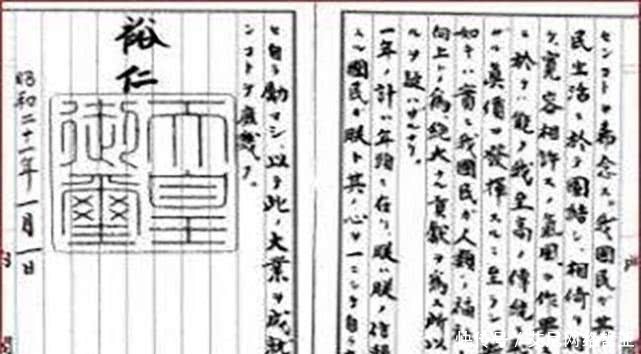 センコトヲ希念ス。我國民ガ其
民生活ニ於テ團結シ、相倚リ
ケ、寬容相許スノ氣風ヲ作興
ニ於テハ能ク我至高ノ傳統
ザル眞價ヲ發揮スルニ至ラン
如キハ實ニ我國民ガ人類ノ福
向上トノ爲、絶大ナル貢獻ヲ爲ス所以
ルヲ疑ハザルナリ。
一年ノ計ハ年頭ニ在リ、朕ハ朕ノ信頼
スル國民ガ朕ト其ノ心ヲ一ニシテ自ラ
ヒ自ラ勵マシ、以テ此ノ大業ヲ成就
ンコトヲ庶幾フ。
裕仁
天皇
御璽
昭和二十一年一月一日
快传号